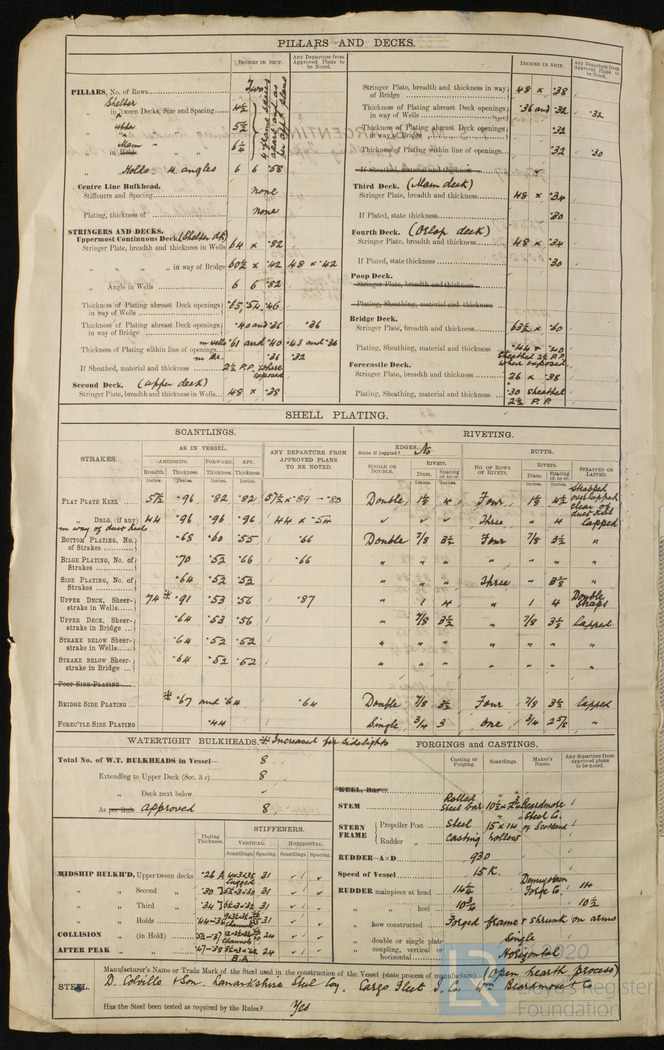 PILLARS AND DECKS.
INCHES IN SHIP.
Any Departure from Approved Plans to be Noted.
PILLARS, No. of Rows Two
Shelter
in 'tween Decks, Size and Spacing 4½
" upper " " 5½
" Main " " 6¼
4 frame spaces apart and as per app'd plans
" Holds. 4 angles 6 6 .58
Centre Line Bulkhead.
Stiffeners and Spacing none
Plating, thickness of none
STRINGERS AND DECKS.
Uppermost Continuous Deck (Shelter dk)
Stringer Plate, breadth and thickness in Wells 64 × .82
" " " " in way of Bridge 60½ × .42 48 × .42
" Angle in Wells 6 6 .82
Thickness of Plating abreast Deck openings in way of Wells .65, .54, .46
Thickness of Plating abreast Deck openings in way of Bridge .40 and .36 .36
in wells .61 and .40 .43 and .36
Thickness of Plating within line of openings
in Br. .36 .32
If Sheathed, material and thickness 2½ P.P. where exposed
Second Deck. (upper deck)
Stringer Plate, breadth and thickness in Wells 48 × .38
INCHES IN SHIP.
Any Departure from Approved Plans to be Noted.
Stringer Plate, breadth and thickness in way of Bridge 48 × .38
Thickness of Plating abreast Deck openings in way of Wells .36 and .32 .32
Thickness of Plating abreast Deck openings in way of Bridge .32
Thickness of Plating within line of openings .32 .30
If Sheathed, material and thickness
Third Deck. (Main deck)
Stringer Plate, breadth and thickness 48 × .34
If Plated, state thickness .30
Fourth Deck. (Orlop deck)
Stringer Plate, breadth and thickness 48 × .34
If Plated, state thickness .30
Poop Deck.
Stringer Plate, breadth and thickness
Plating, Sheathing, material and thickness
Bridge Deck.
Stringer Plate, breadth and thickness 63½ × .60
Plating, Sheathing, material and thickness .44 & .40
Sheathed 2½ P.P. where exposed
Forecastle Deck.
Stringer Plate, breadth and thickness 26 × .38
Plating, Sheathing, material and thickness .30 sheathed
2½ P.P.
SHELL PLATING.
SCANTLINGS.
RIVETING.
STRAKES.
AS IN VESSEL.
AMIDSHIPS. FORWARD. AFT.
Breadth. Thickness. Thickness Thickness
Inches. Inches. Inches. Inches.
ANY DEPARTURE FROM APPROVED PLANS TO BE NOTED.
EDGES. No
State if joggled?
SINGLE OR DOUBLE.
RIVETS.
Diam. Spacing cr. to cr.
BUTTS.
NO. OF ROWS OF RIVETS.
RIVETS.
Diam. Spacing cr. to cr.
STRAPPED OR LAPPED
FLAT PLATE KEEL 57½ .96 .82 .82 57½ × .89 - .80 Double 1⅛ 4 Four 1⅛ 4½ Strapped overlapped clear of duct keel
" DBLG. (if any) 44 .96 .96 .96 44 × .54 Three " 4 lapped
in way of duct keel
BOTTOM PLATING, No. of Strakes .68 .60 .55 .66 Double 7/8 3½ Four 7/8 3½ "
BILGE PLATING, No. of Strakes .70 .52 .66 .66 " " " " " " "
SIDE PLATING, No. of Strakes .64 .52 .52 " " " Three " 3⅛ "
UPPER DECK, Sheerstrake in Wells 74 * .91 .53 .56 .87 " 1 4 " 1 4 Double Straps
UPPER DECK, Sheerstrake in Bridge .64 .53 .56 " 7/8 3½ " 7/8 3⅛ lapped
STRAKE BELOW SHEERstrake in Wells .64 .52 .52 " " " " " " "
STRAKE BELOW SHEERstrake in Bridge .64 .52 .52 " " " " " " "
POOP SIDE PLATING
BRIDGE SIDE PLATING * .67 and .64 .64 Double 7/8 3½ Four 7/8 3½ lapped
FOREC'TLE SIDE PLATING .44 Single 3/4 3 One 3/4 2 5/8 "
WATERTIGHT BULKHEADS. * Increased for sidelights
Total No. of W.T. BULKHEADS in Vessel 8
Extending to Upper Deck (Sec. 3 c) 8
" Deck next below
As per Rule approved 8
Plating Thickness.
STIFFENERS.
VERTICAL. HORIZONTAL.
Scantlings. Spacing. Scantlings. Spacing.
MIDSHIP BULKH'D, Upper tween decks .26 31
" " Second " .30 31
" " Third " .34 31
" " Holds 31
COLLISION " (in Hold) 24
AFTER PEAK " " 24
FORGINGS and CASTINGS.
Casting or Forging. Scantlings. Maker's Name. Any departure from approved plans to be noted.
KEEL, Bar
STEM Rolled Steel bar 10½ × 2½ Beardmore
STERN FRAME Propeller Post Steel 15 × 14 Steel Co. of Scotland
Rudder " casting hollow
RUDDER-A×D 930
Speed of Vessel 15 K.
RUDDER mainpiece at head 14¼ Dennystown Forge Co. 14
" " heel 10¾ 10½
" how constructed Forged frame & shrunk on arms
" double or single plate Single
" coupling, vertical or horizontal Horizontal
STEEL. Manufacturer's Name or Trade Mark of the Steel used in the construction of the Vessel (state process of manufacture). (Open hearth process)
D. Colville & Son. Lanarkshire Steel Coy. Cargo Fleet I. Co. Wm Beardmore & Co
Has the Steel been tested as required by the Rules? Yes
2020
LR
Lloyd's Register
Foundation